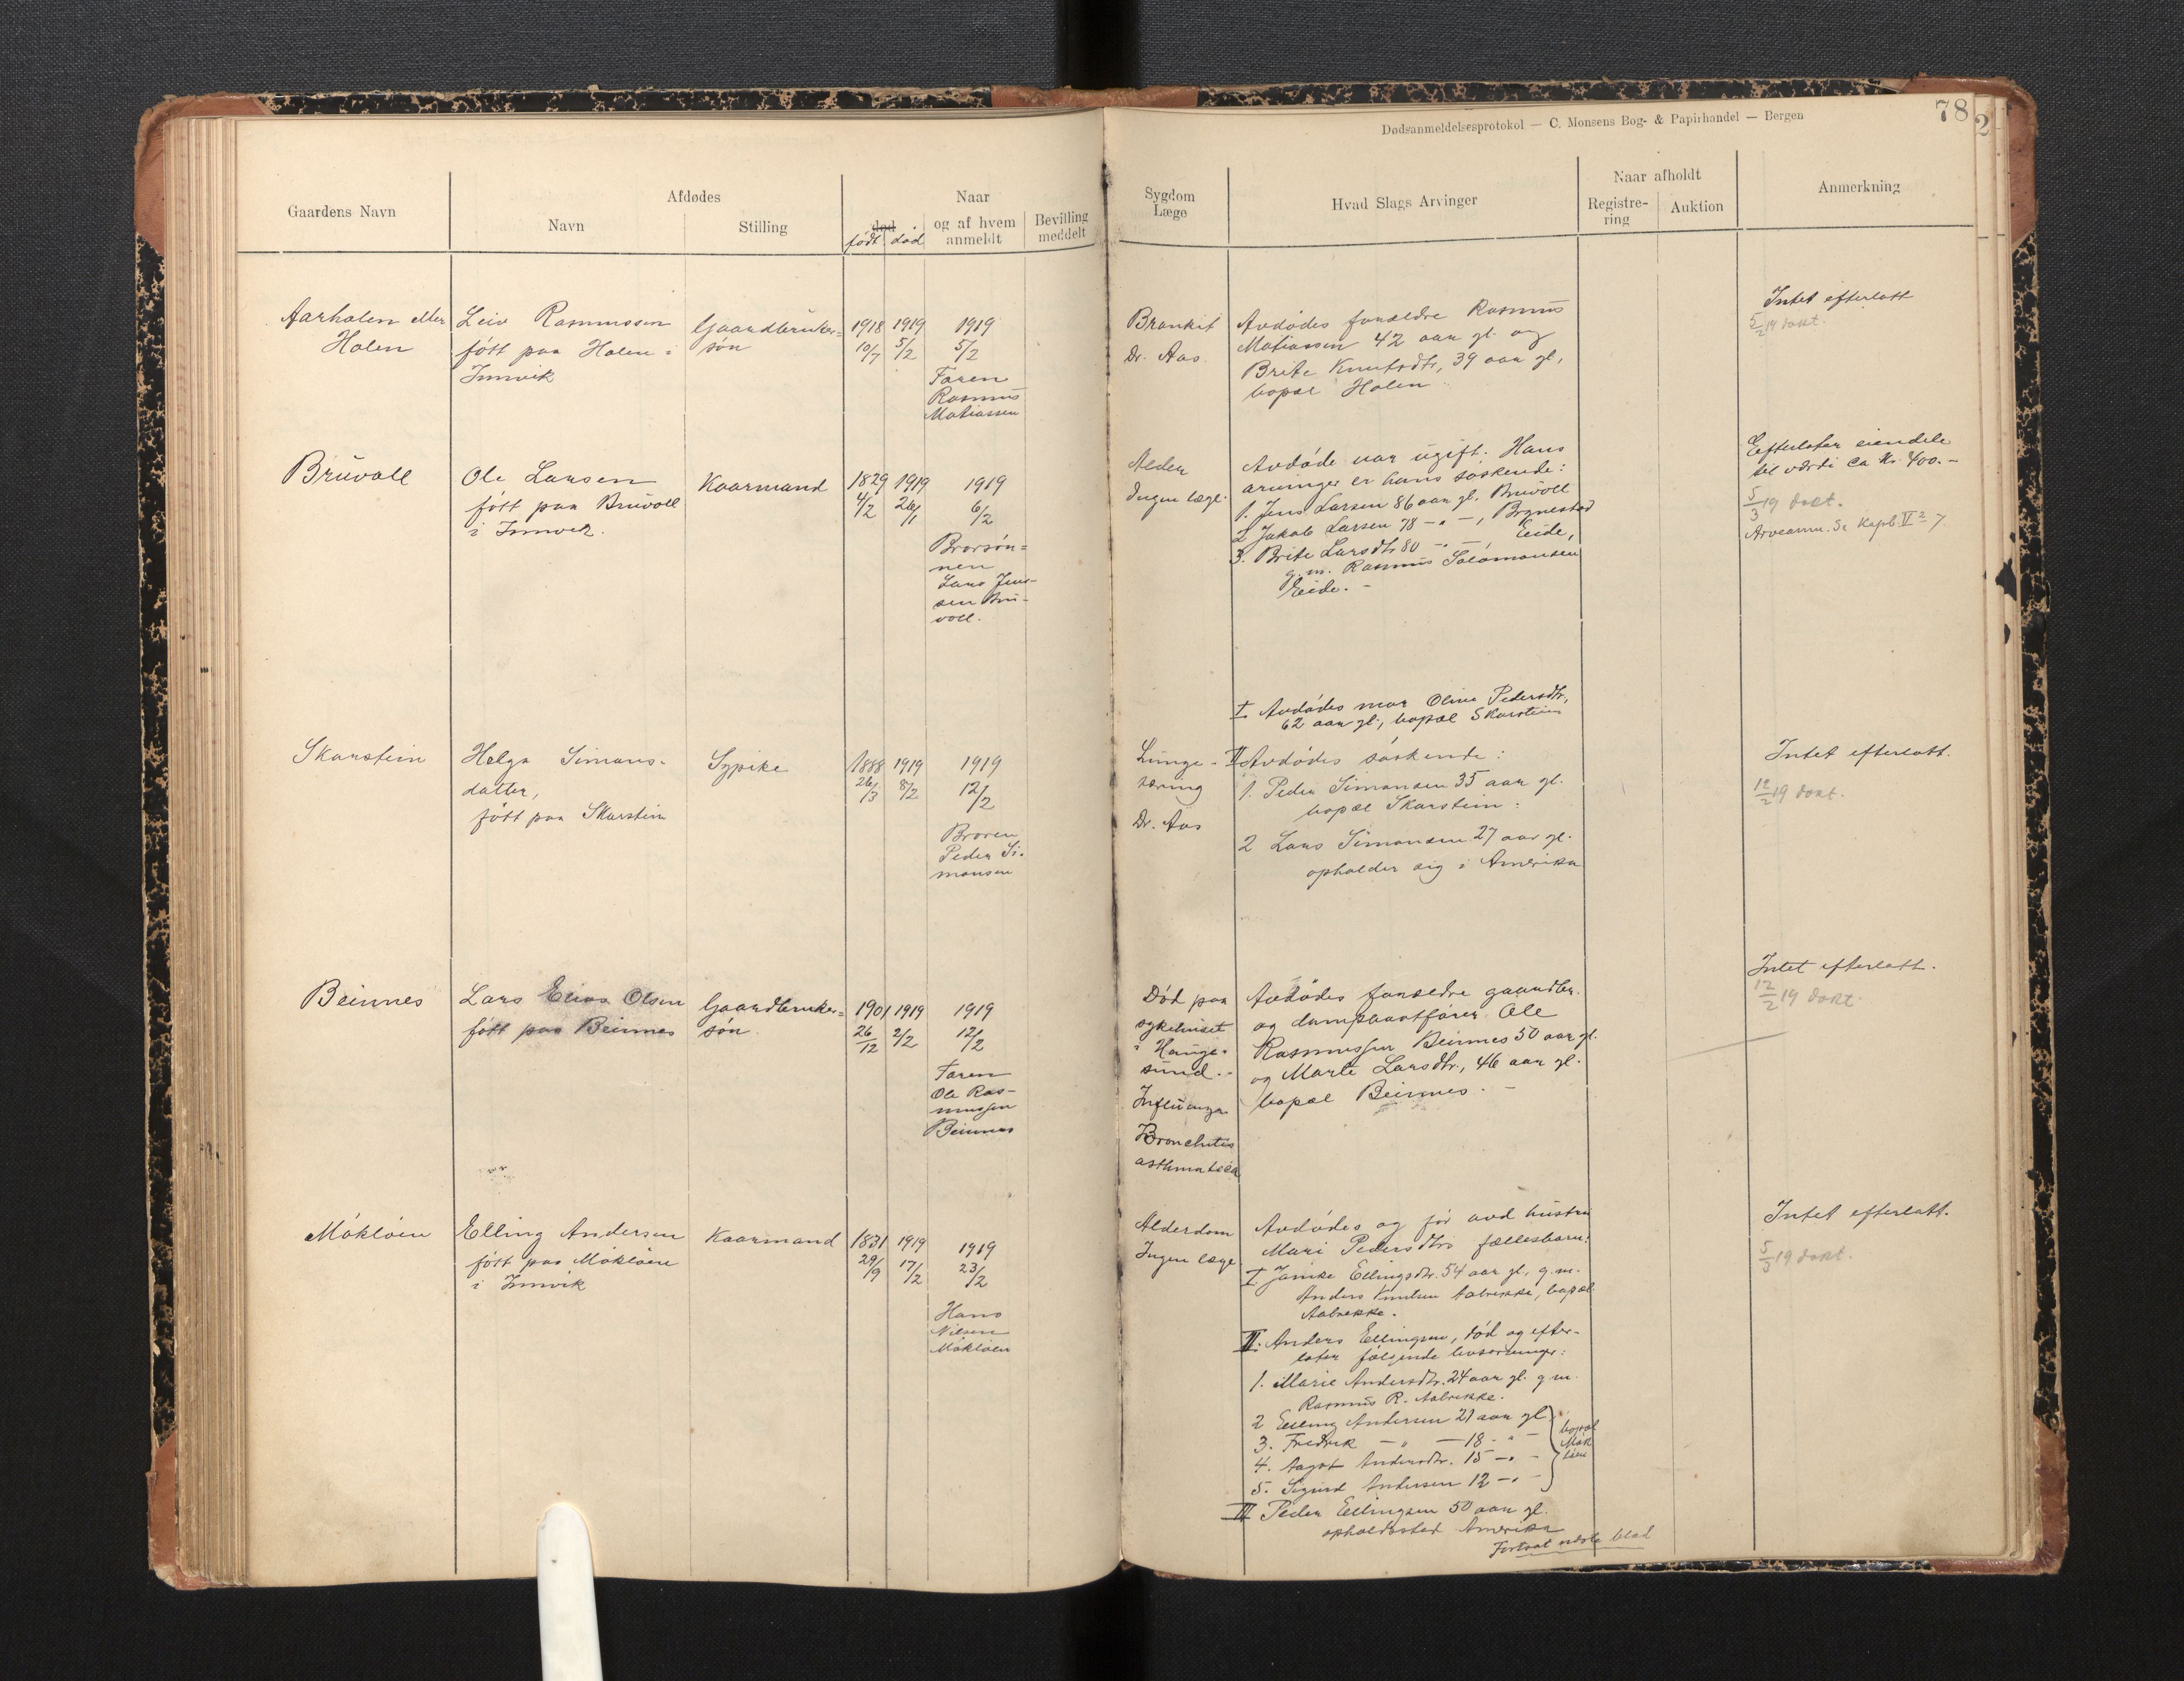 Dødsanmeldelsesprotokol — C. Monsens Bog- & Papirhandel — Bergen
78
2
Gaardens Navn
Afdødes
Navn
Stilling
født
død
død
Naar
og af hvem
anmeldt
Bevilling
meddelt
Sygdom
Læge
Hvad Slags Arvinger
Naar afholdt
Registre-
ring
Auktion
Anmerkning
Aarholen eller
Holen
Leiv Rasmussen
født paa Holen i
Innvik
Gaardbruker-
søn
1918
10/7
1919
5/2
1919
5/2
Faren
Rasmus
Matiassen
Dr. Aas
Avdødes forældre Rasmus
Matiassen 42 aar gl. og
Brite Knutsdtr, 39 aar gl,
bopæl Holen
Intet efterlatt
5/2 19 dokt.
Bruvoll
Ole Larsen
født paa Bruvoll
i Innvik.
Kaarmand
1829
4/2
1919
26/1
1919
6/2
Brorsøn-
nen
Lars Jens-
sen Bru-
voll.
Alder
Ingen læge.
Avdøde var ugift. Hans
arvinger er hans søskende:
1. Jens Larsen 86 aar gl. Bruvoll
2 Jakob Larsen 78 -"-, Brynestad
3. Brite Larsdtr 80 -"-, Eide,
g. m. Rasmus Salamonsen
Eide. -
Efterlater eiendele
til værdi ca Kr. 400.-
5/3 19 dokt.
Arveanm. Se Kapb. V 2 7
Skarstein
Helga Simons-
datter,
født paa Skarstein
Sypike
1888
26/3
1919
8/2
1919
12/2
Broren
Peder Si-
monsen
Lunge-
tæring
Dr. Aas
I Avdødes mor Oline Pedersdtr,
62 aar gl., bopæl Skarstein
II Avdødes søskende:
1. Peder Simonsen 35 aar gl.
bopæl Skarstein:
2 Lars Simonsen 27 aar gl.
opholder sig i Amerika
Intet efterlatt.
12/2 19 dokt.
Beinnes
Lars Elias Olsen
født paa Beinnes
Gaardbruker-
søn
1901
26/12
1919
2/2
1919
12/2
Faren
Ole Ras-
mussen
Beinnes
Død paa
sykehuset
i Hauge-
sund.-
Influenza
Bronchitis
asthmatica
Avdødes forældre gaardbr.
og dampbaatfører Ole
Rasmussen Beinnes 50 aar gl.
og Marte Larsdtr., 46 aar gl.
bopæl Beinnes. -
Intet efterlatt.
12/2 19 dokt.
Mókløien
Elling Andersen
født paa Mókløien
i Innvik
Kaarmand
1831
29/9
1919
17/2
1919
23/2
Hans
Nilsen
Mókløien
Alderdom
Ingen læge
Avdødes og før avd hustru
Mari Pedersdtrs fællesbarn:
I Jamke Ellingsdtr. 54 aar gl, g.m.
Anders Knutsen Aabrekke, bopæl
Aabrekke.
II: Anders Ellingsen, død og efter-
later følgende livsarvinger:
1. Marie Andersdtr. 24 aar gl. g m.
Rasmus R. Aabrekke.
2 Elling Andersen 21 aar gl
3. Fredrik -"- 18 -"-
4. Aagot Andersdtr. 15 -"-
5. Sigurd Andersen 12 -"-
bopæl
Mók
løien
III Peder Ellingsen 50 aar gl.
opholdssted Amerika
Fortsat næste blad
Intet efterlatt.
5/3 19 dokt.